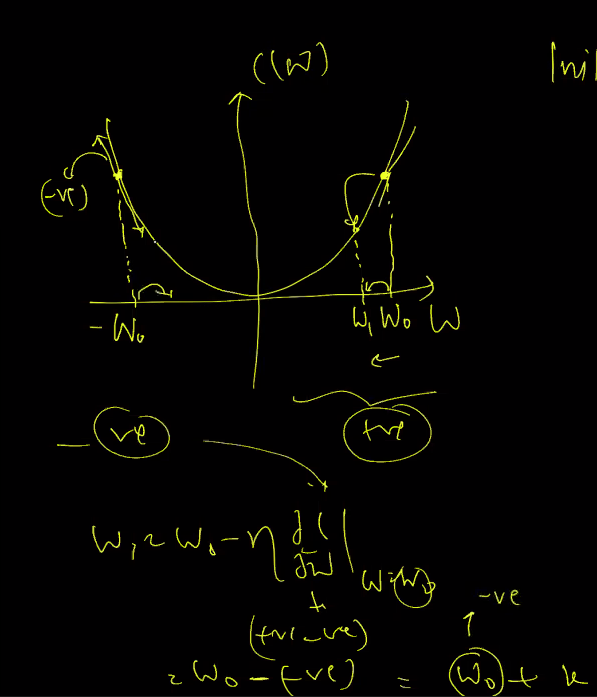 C(W)
|ni|
(-ve)
- W₀
W₁ W₀ W
←
- ve
+ve
W₁ = W₀ - η ∂C/∂W | W=W₀
-ve
↑
+
(+ve -ve)
= W₀ - (-ve) = W₀ + x